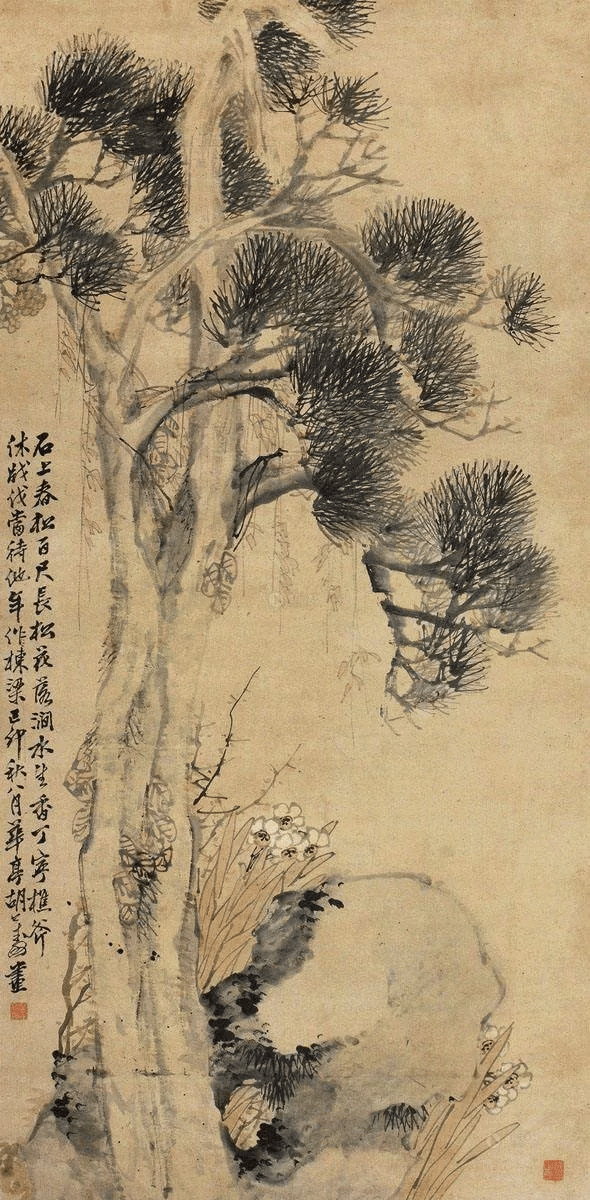 石上春松百尺長松花落澗水生香丁寧樵斧
休戕伐當待他年作棟梁己卯秋八月華亭胡公壽畫